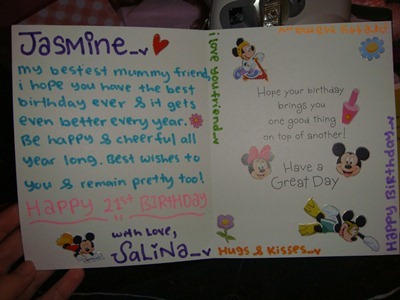 Jasmine
my bestest mummy friend,
i hope you have the best
birthday ever & it gets
even better every year.
Be happy & cheerful all
year long. Best wishes to
you & remain pretty too!
Happy 21st Birthday
with Love,
SaLiNa
i love you friend
Hope your birthday
brings you
one good thing
on top of another!
Have a
Great Day
Hugs & Kisses
Happy Birthday